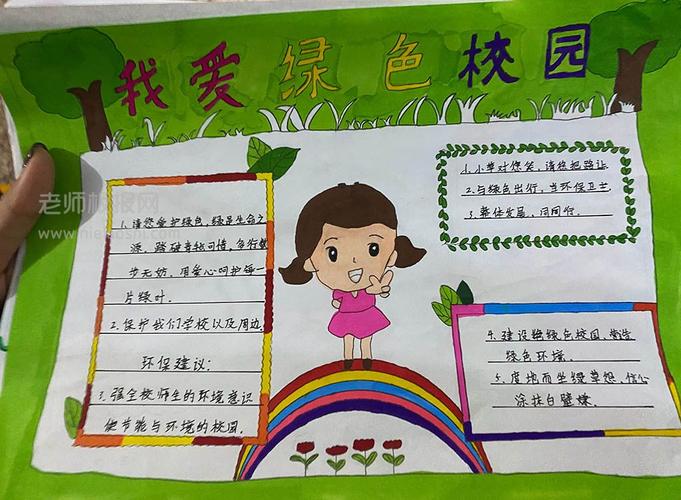 我爱绿色校园
1.请您爱护绿色,绿是生命之
源,踏破青毯可惜,多行数
步无妨,用爱心呵护每一
片绿叶.
2.保护我们学校以及周边,
环保建议:
3.强全校师生的环境意识
使节能与环境的校园.
1.小草对您笑,请您把路让
2.与绿色出行,当环保卫士
3.整体发展,同同行.
4.建设绿色校园,
绿色环境.
5.度地而坐绿草想,信心
涂抹白壁嫌.
老师板报网